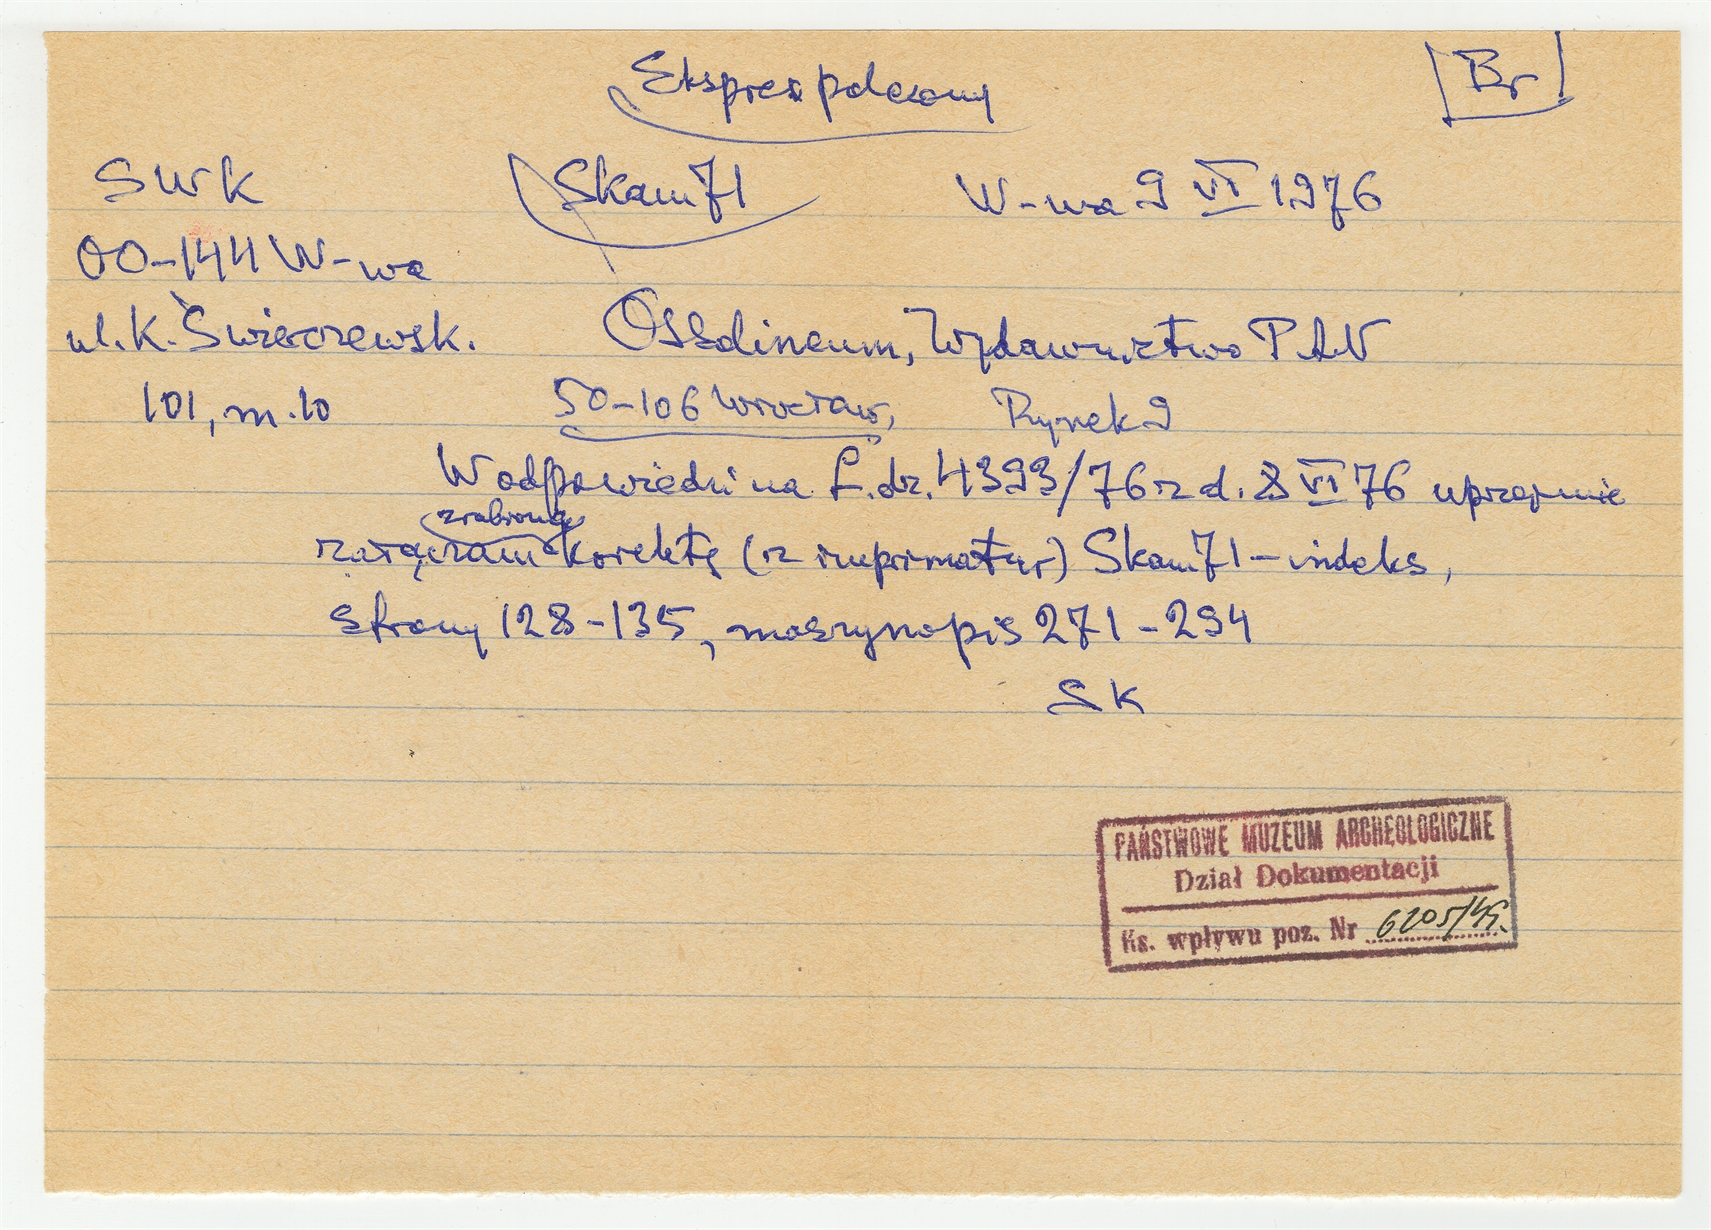 Ekspres polecony
Br
SWK
Skam71
W-wa 9 VI 1976
00-144 W-wa
ul. K. Świerczewsk.
Ossolineum, Wydawnictwo PAN
101, m. 10
50-106 Wrocław, Rynek 9
W odpowiedzi na L.dz. 4393/76 z d. 8 VI 76 uprzejmie
zrobioną
załączam korektę (z imprimatur) Skam71 – indeks,
strony 128-135, maszynopis 271-294
SK
PAŃSTWOWE MUZEUM ARCHEOLOGICZNE
Dział Dokumentacji
Ks. wpływu poz. Nr 6205/45.